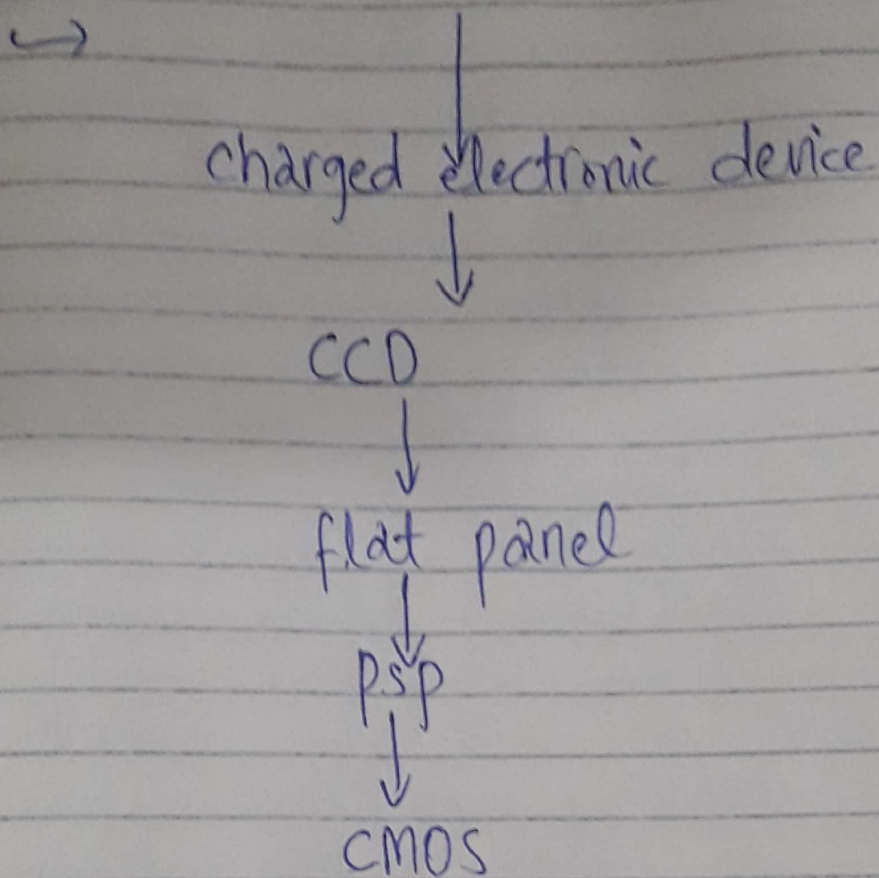 charged electronic device
CCD
flat panel
psp
CMOS